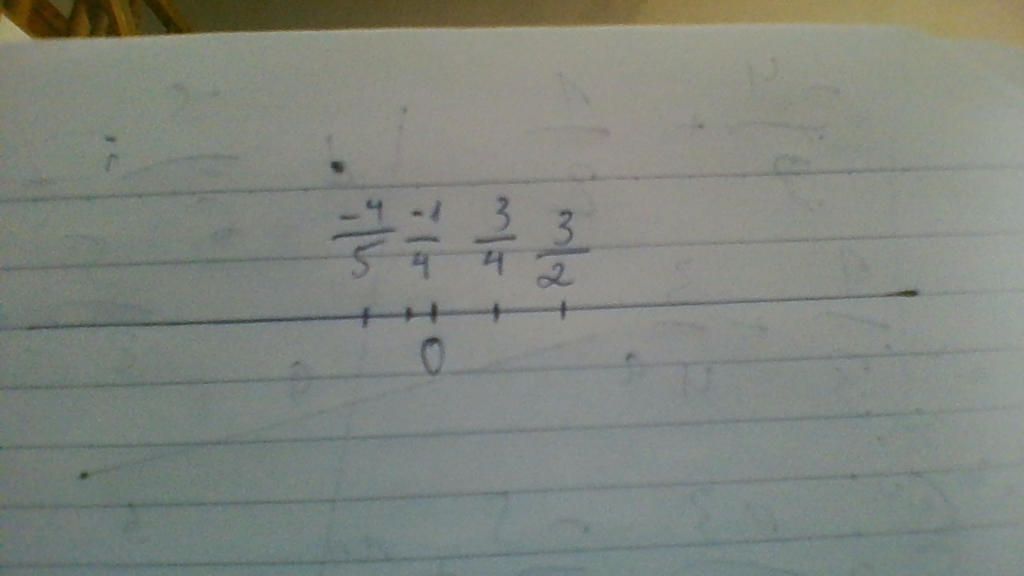 -4/5 -1/4 3/4 3/2
0